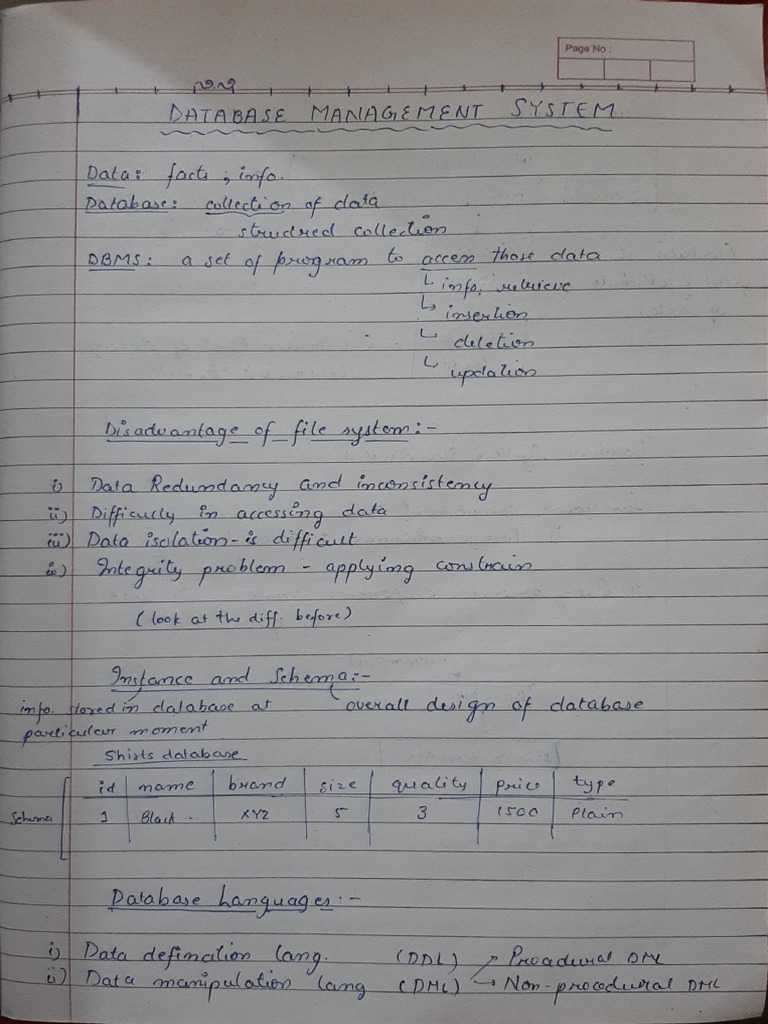 Page No :
DATABASE MANAGEMENT SYSTEM
Data: facts, info.
Database: collection of data
strudred collection
DBMS: a set of program to access those data
↳ info. retrieve
↳ insertion
↳ deletion
↳ updation
Disadvantage of file system:-
i) Data Redundancy and inconsistency
ii) Difficulty in accessing data
iii) Data isolation - is difficult
iv) Integrity problem - applying constrain
(look at the diff. before)
Instance and Schema:-
info. stored in database at overall design of database
particular moment
Shirts database
id name brand size quality price type
Schema 1 Black XYZ 5 3 1500 Plain
Database Languages:-
i) Data defination lang. (DDL) → Procedural DML
ii) Data manipulation lang (DML) → Non-procedural DML